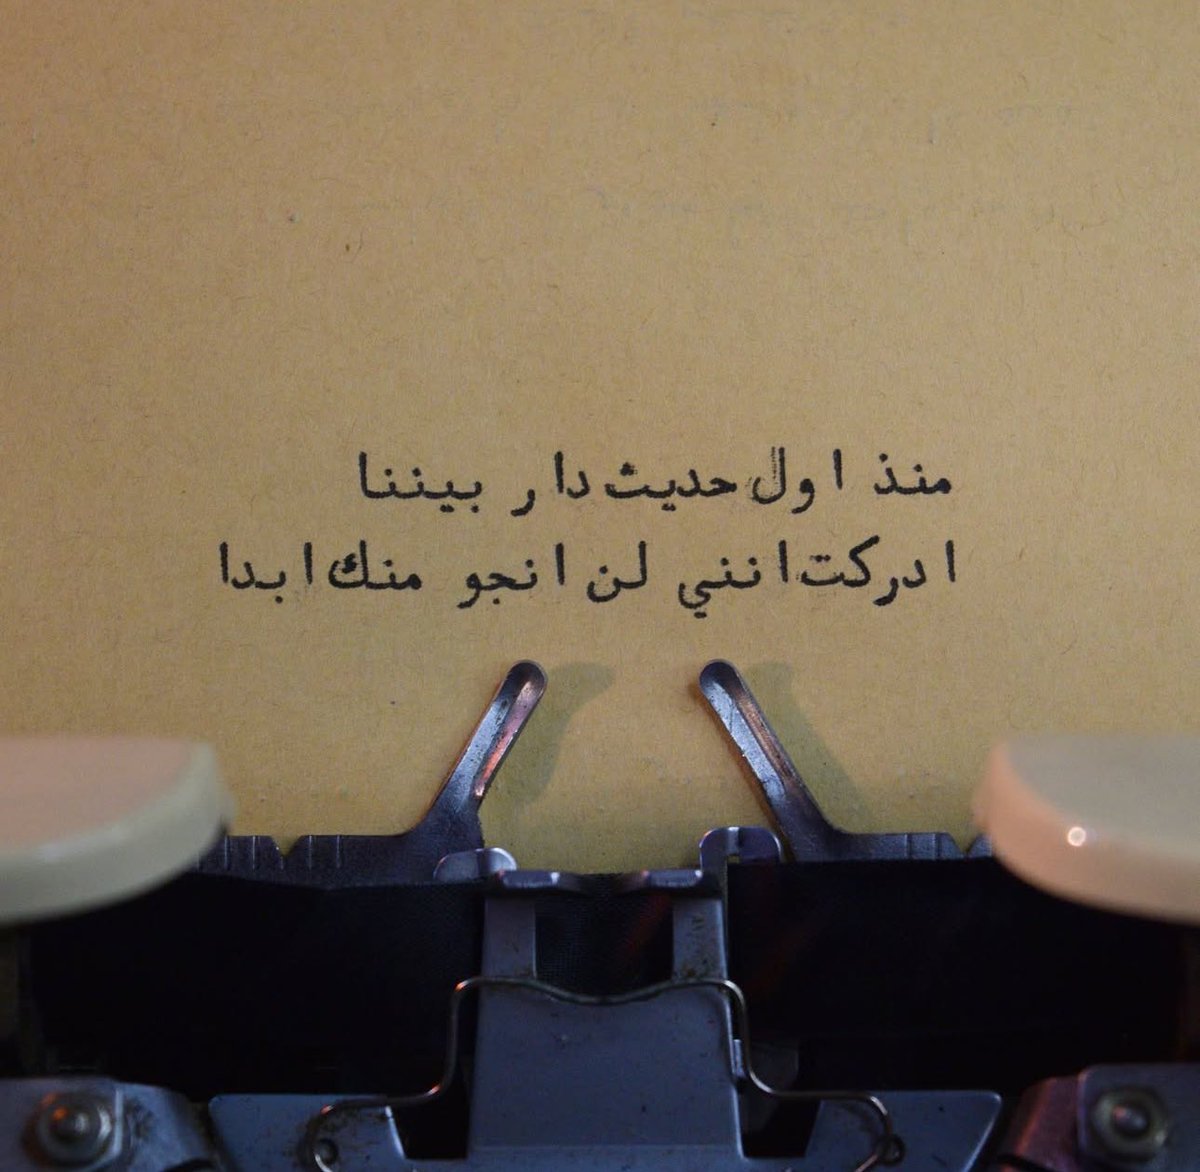 منذ اول حديث دار بيننا
ادركت انني لن انجو منك ابدا